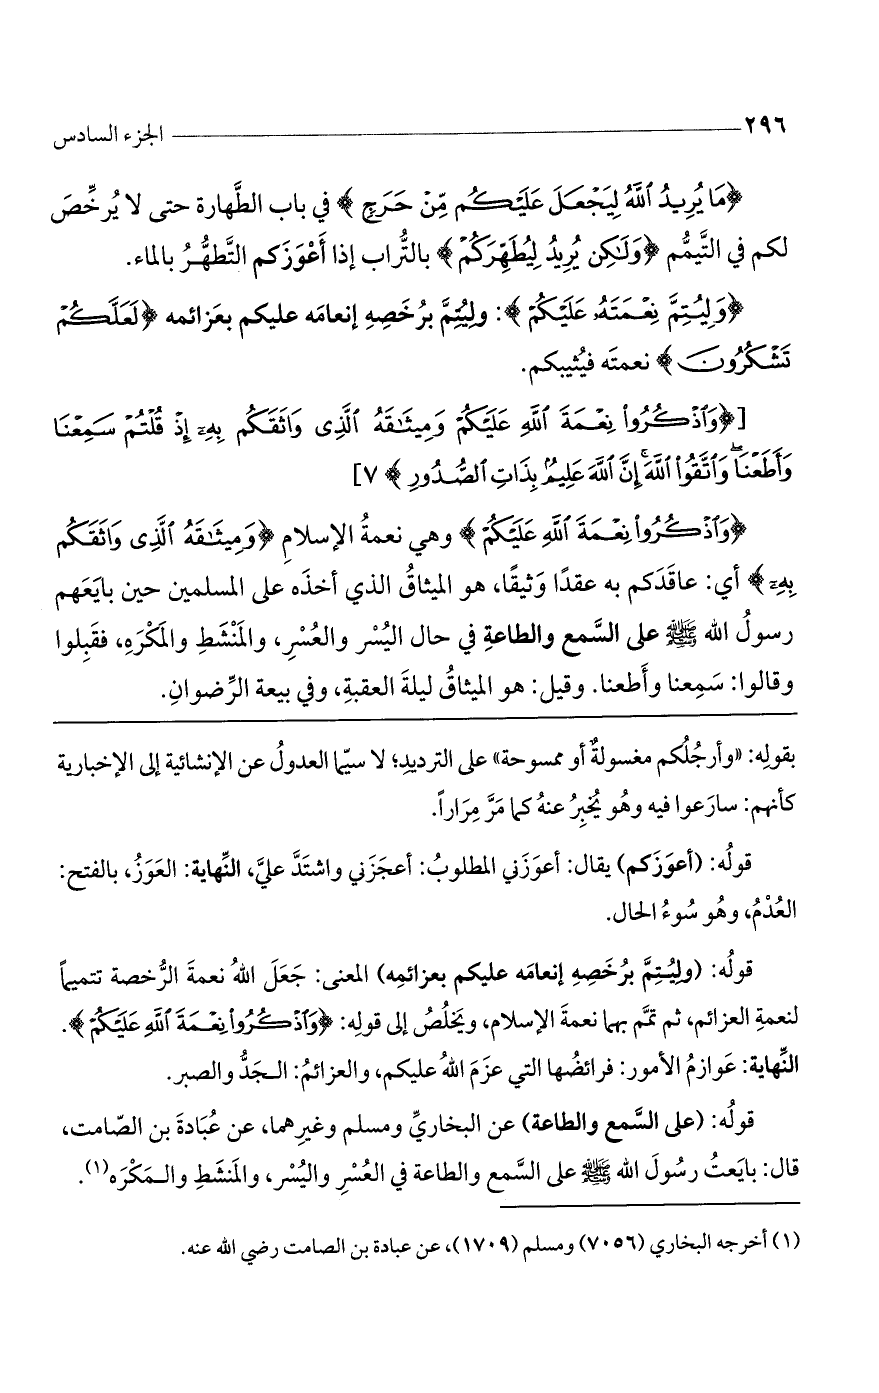 ٢٩٦ الجزء السادس
﴿مَا يُرِيدُ ٱللَّهُ لِيَجْعَلَ عَلَيْكُم مِّنْ حَرَجٍ﴾ في باب الطَّهارة حتى لا يُرخِّصَ
لكم في التَّيمُّم ﴿وَلَٰكِن يُرِيدُ لِيُطَهِّرَكُمْ﴾ بالتُّراب إذا أَعْوَزَكم التَّطهُّرُ بالماء.
﴿وَلِيُتِمَّ نِعْمَتَهُۥ عَلَيْكُمْ﴾: ولِيُتِمَّ برُخَصِهِ إنعامَه عليكم بعَزائمه ﴿لَعَلَّكُمْ
تَشْكُرُونَ﴾ نعمتَه فيُثيبكم.
[﴿وَٱذْكُرُوا۟ نِعْمَةَ ٱللَّهِ عَلَيْكُمْ وَمِيثَٰقَهُ ٱلَّذِى وَاثَقَكُم بِهِۦٓ إِذْ قُلْتُمْ سَمِعْنَا
وَأَطَعْنَا ۖ وَٱتَّقُوا۟ ٱللَّهَ ۚ إِنَّ ٱللَّهَ عَلِيمٌۢ بِذَاتِ ٱلصُّدُورِ﴾ ٧]
﴿وَٱذْكُرُوا۟ نِعْمَةَ ٱللَّهِ عَلَيْكُمْ﴾ وهي نعمةُ الإسلامِ ﴿وَمِيثَٰقَهُ ٱلَّذِى وَاثَقَكُم
بِهِۦٓ﴾ أي: عاقَدَكم به عقدًا وَثيقًا، هو الميثاقُ الذي أخذَه على المسلمين حين بايَعَهم
رسولُ الله ﷺ على السَّمع والطاعةِ في حال اليُسْر والعُسْرِ، والمَنْشَطِ والمَكْرَهِ، فقَبِلوا
وقالوا: سَمِعنا وأَطعنا. وقيل: هو الميثاقُ ليلةَ العقبةِ، وفي بيعة الرِّضوانِ.
بقولِه: «وأرجُلُكم مغسولةٌ أو ممسوحة» على الترديدِ؛ لا سيّما العدولُ عن الإنشائية إلى الإخبارية
كأنهم: سارَعوا فيه وهُو يُخبِرُ عنهُ كما مَرَّ مِرَاراً.
قولُه: (أعوَزَكم) يقال: أعوَزَني المطلوبُ: أعجَزَني واشتَدَّ عليَّ، النِّهاية: العَوَزُ، بالفتح:
العُدْمُ، وهُو سُوءُ الحال.
قولُه: (ولِيُتِمَّ برُخَصِهِ إنعامَه عليكم بعزائمِه) المعنى: جَعَلَ اللهُ نعمةَ الرُّخصة تتميماً
لنعمةِ العزائم، ثم تمَّم بهما نعمةَ الإسلام، ويَخلُصُ إلى قولِه: ﴿وَٱذْكُرُوا۟ نِعْمَةَ ٱللَّهِ عَلَيْكُمْ﴾.
النِّهاية: عَوازمُ الأمور: فرائضُها التي عزَمَ اللهُ عليكم، والعزائمُ: الـجَدُّ والصبر.
قولُه: (على السَّمع والطاعة) عن البخاريِّ ومسلم وغيرِهما، عن عُبَادةَ بن الصّامت،
قال: بايَعتُ رسُولَ الله ﷺ على السَّمع والطاعة في العُسْرِ واليُسْر، والمَنشَطِ والـمَكْرَه(١).
(١) أخرجه البخاري (٧٠٥٦) ومسلم (١٧٠٩)، عن عبادة بن الصامت رضي الله عنه.